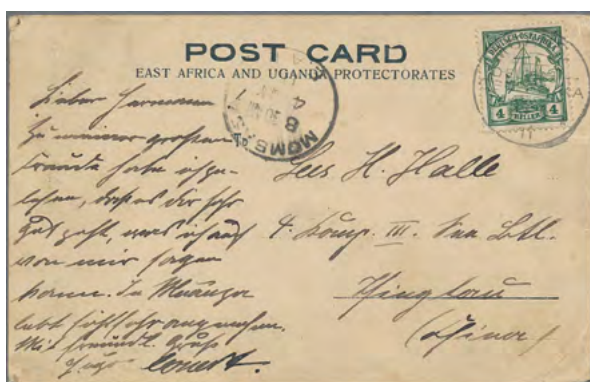 POST CARD
EAST AFRICA AND UGANDA PROTECTORATES
Lieber Hermann
Zu meiner großen
Freude habe ich ge-
lesen, daß es dir sehr
gut geht, was ich auch
von mir sagen
kann. In Muanza
lebt sich's sehr angenehm.
Mit freundl. Gruß
MOMBASA
DEUTSCH-OSTAFRIKA
4 HELLER 4
H. Halle
4. Komp. III. See Btl.
Tsingtau
(China)